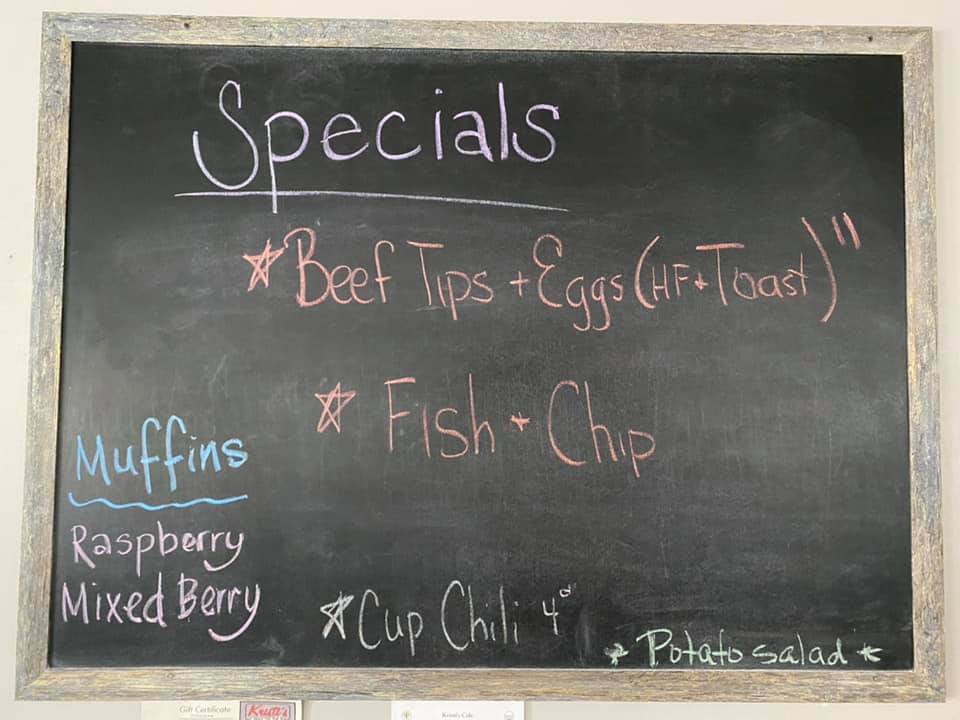 Specials
☆ Beef Tips + Eggs (HF + Toast) 11
☆ Fish + Chip
Muffins
Raspberry
Mixed Berry
☆ Cup Chili 4
* Potato salad *
Gift Certificate